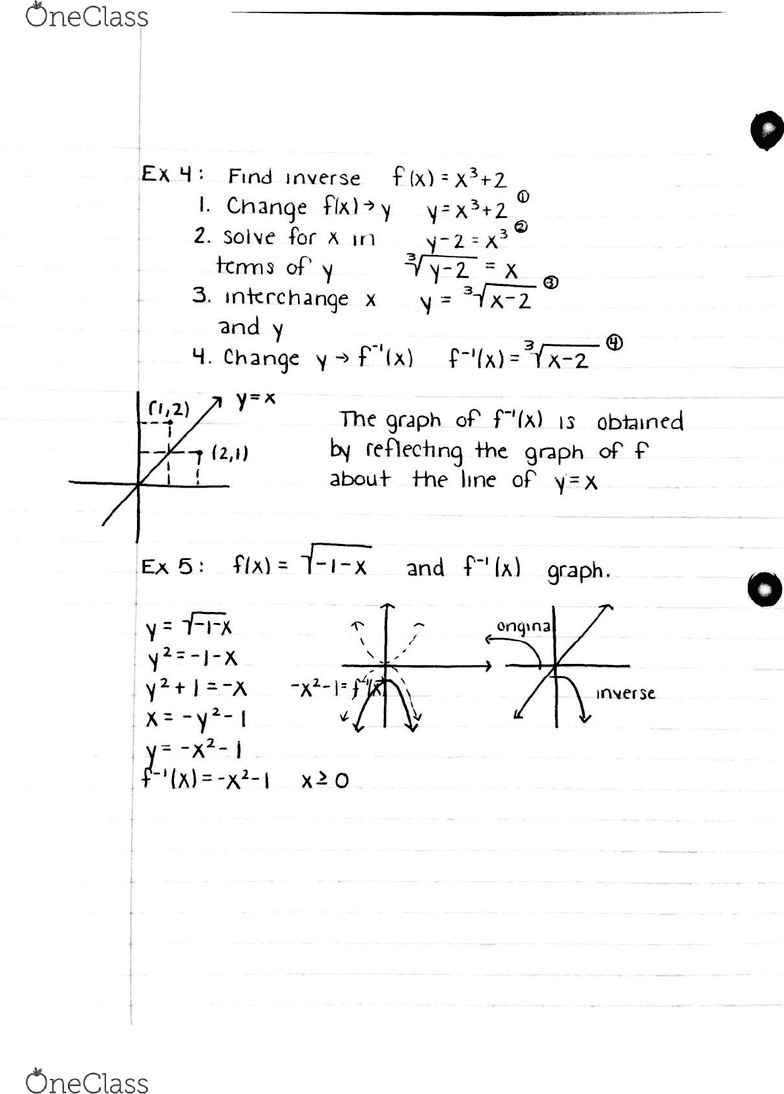 OneClass
Ex 4: Find inverse f(x) = x³+2
1. Change f(x)→y y=x³+2 ①
2. solve for x in y-2 = x³ ②
terms of y ∛(y-2) = x
3. interchange x y = ∛(x-2) ③
and y
4. Change y → f⁻¹(x) f⁻¹(x) = ∛(x-2) ④
(1,2) y=x
(2,1)
The graph of f⁻¹(x) is obtained
by reflecting the graph of f
about the line of y=x
Ex 5: f(x) = √(-1-x) and f⁻¹(x) graph.
y = √(-1-x)
y² = -1-x
y²+1 = -x
x = -y²-1
y = -x²-1
f⁻¹(x) = -x²-1 x≥0
-x²-1 = f⁻¹(x)
original
inverse
OneClass